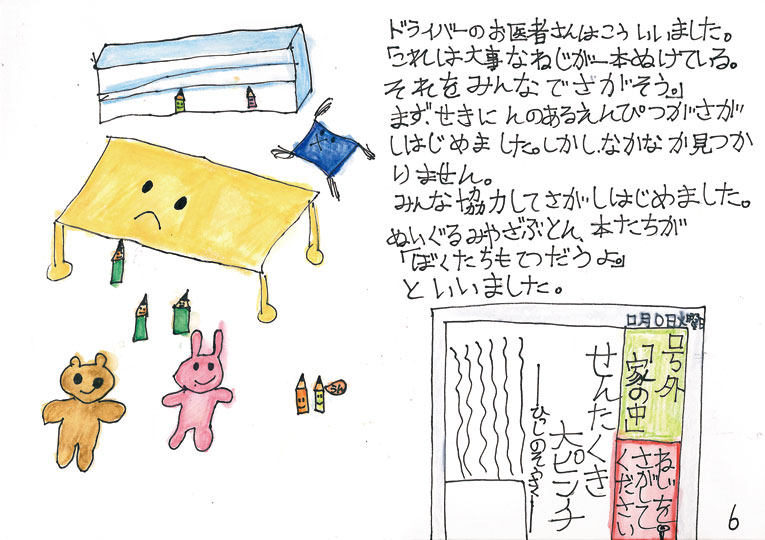 ドライバーのお医者さんはこういいました。
「これは大事なねじが一本ぬけている。
それをみんなでさがそう。」
まず、せきにんのあるえんぴつがさが
しはじめました。しかし、なかなか見つか
りません。
みんな協力してさがしはじめました。
ぬいぐるみやざぶとん、本たちが
「ぼくたちもてつだうよ。」
といいました。
うん
□月□日火曜日
号外
「家の中」
ねじを
さがして
ください
せんたくき
大ピンチ
6